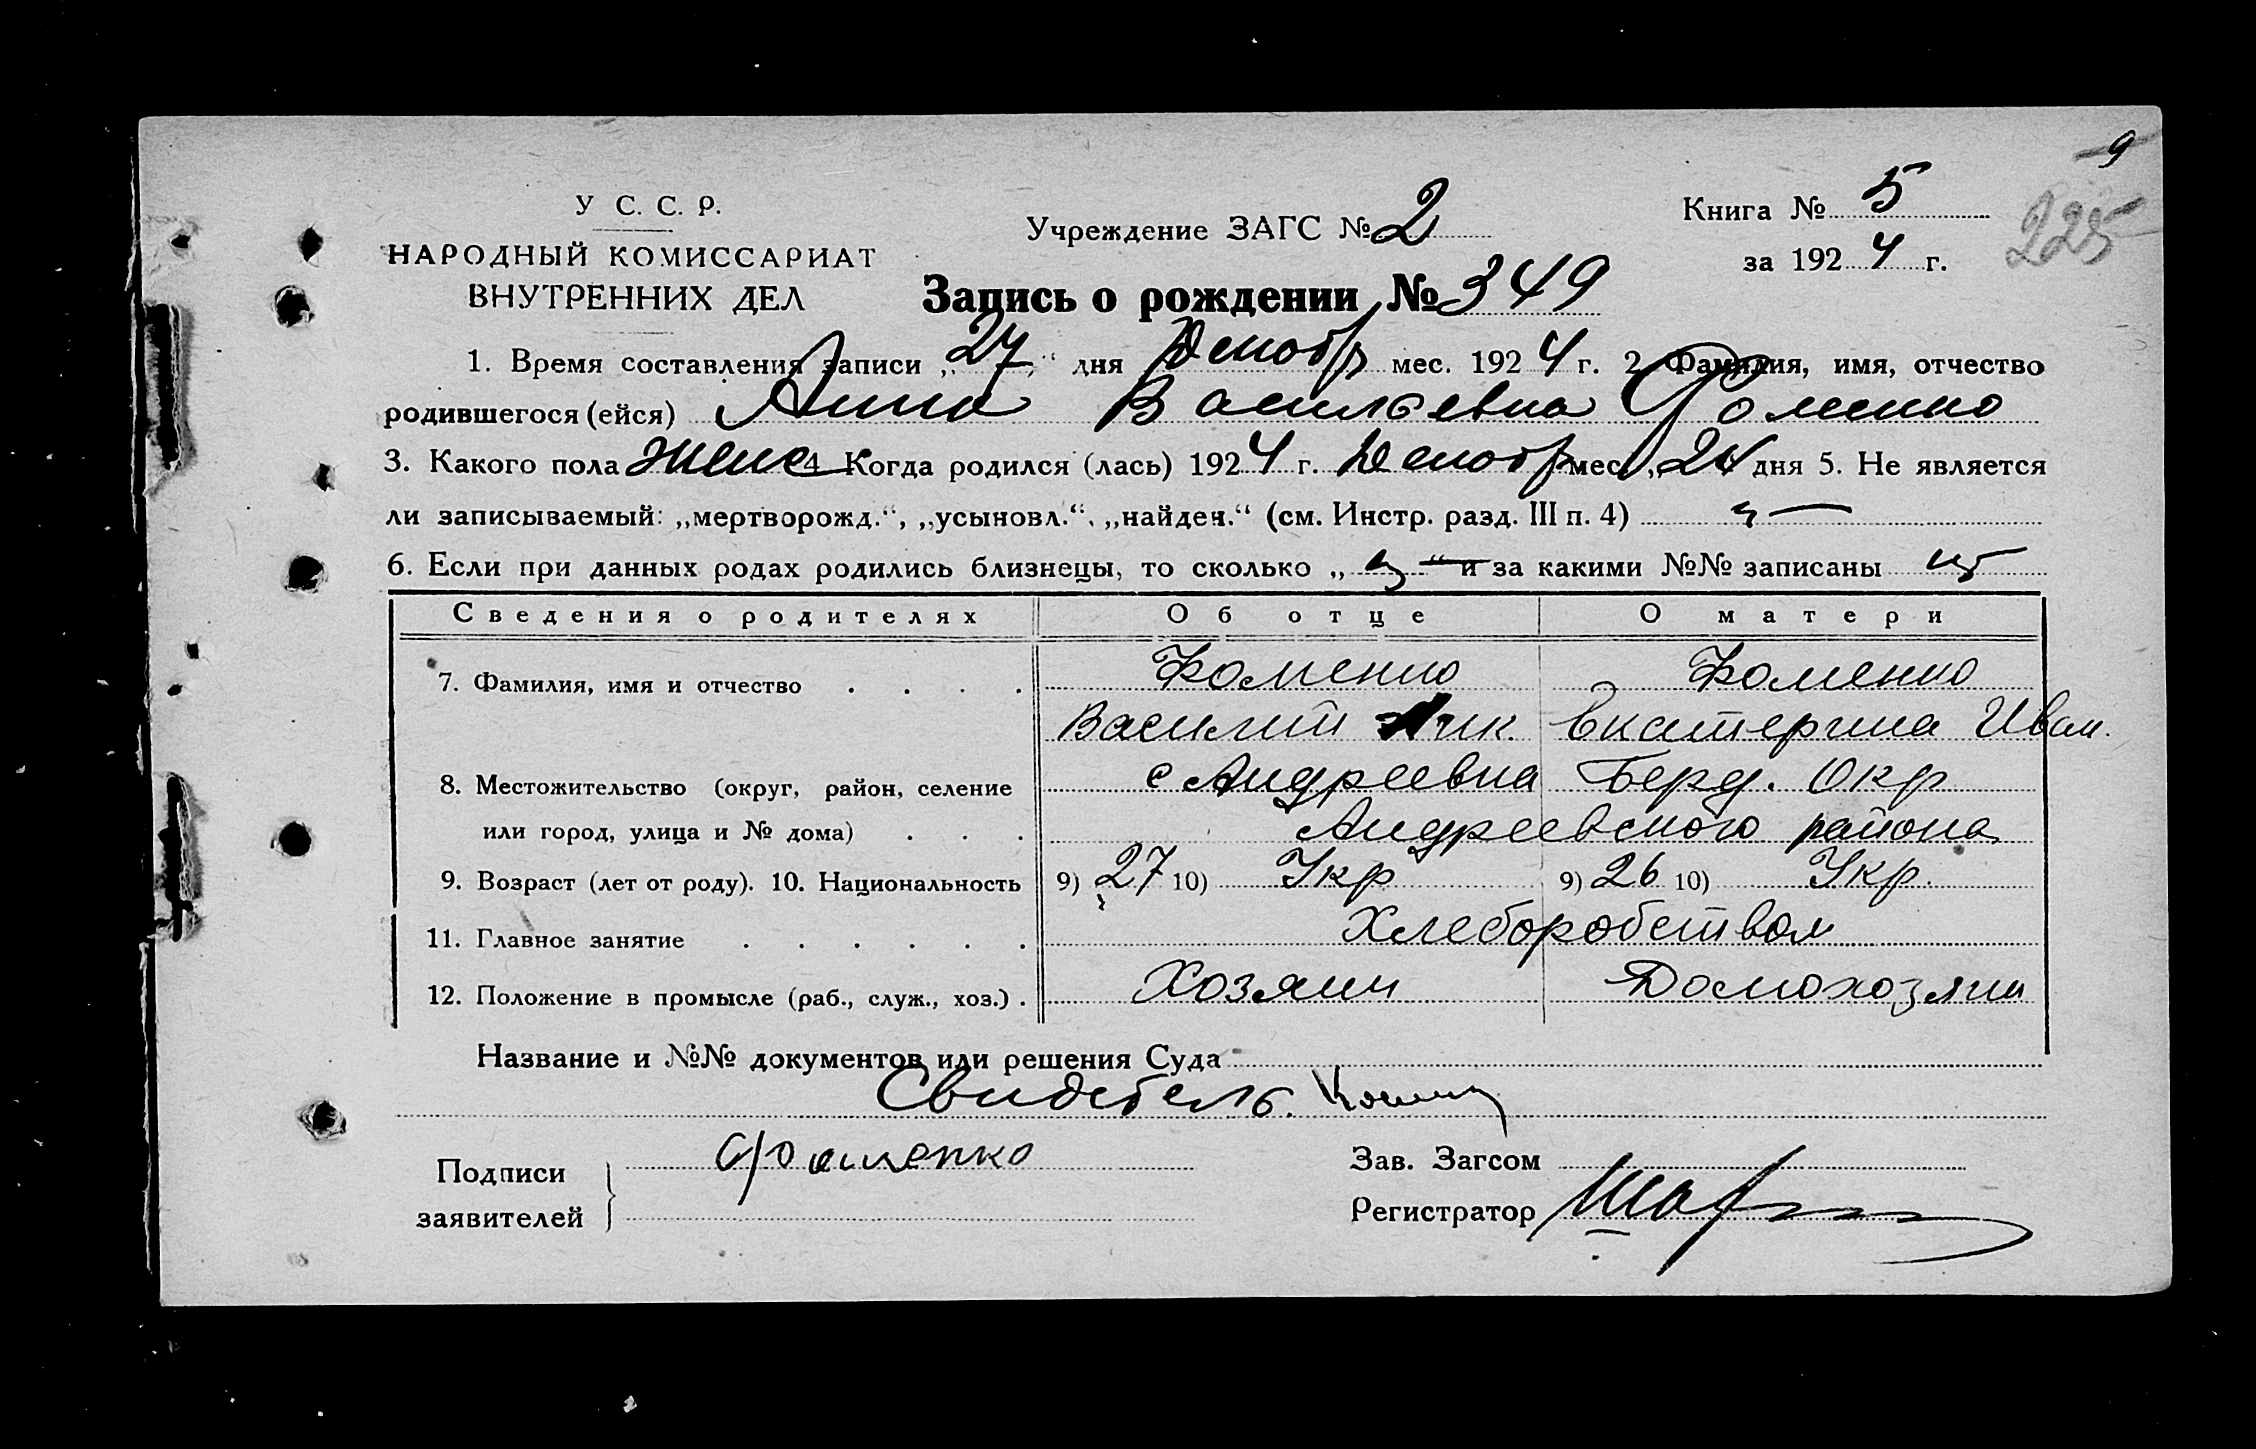 9
225
У С. С. Р.
НАРОДНЫЙ КОМИССАРИАТ
ВНУТРЕННИХ ДЕЛ
Учреждение ЗАГС № 2
Книга № 5
за 1924 г.
Запись о рождении № 349
1. Время составления записи „27“ дня Декабр мес. 1924 г. 2 Фамилия, имя, отчество
родившегося (ейся) Анна Васильевна Фоменко
3. Какого пола женс 4 Когда родился (лась) 1924 г. Декабр мес. „24 дня 5. Не является
ли записываемый: „мертворожд.“, „усыновл.“, „найден.“ (см. Инстр. разд. III п. 4)
6. Если при данных родах родились близнецы, то сколько „ “ и за какими №№ записаны
Сведения о родителях Об отце О матери
7. Фамилия, имя и отчество . . . . Фоменко Фоменко
Василий Ник. Екатерина Иван.
8. Местожительство (округ, район, селение с Андреевка Берд. Окр
или город, улица и № дома) . . . Андреевского района
9. Возраст (лет от роду). 10. Национальность 9) 27 10) Укр 9) 26 10) Укр.
11. Главное занятие . . . . . . Хлеборобством
12. Положение в промысле (раб., служ., хоз.) . Хозяин Домохозяин
Название и №№ документов или решения Суда
Свидетель.
Подписи
заявителей
Фоменко
Зав. Загсом
Регистратор